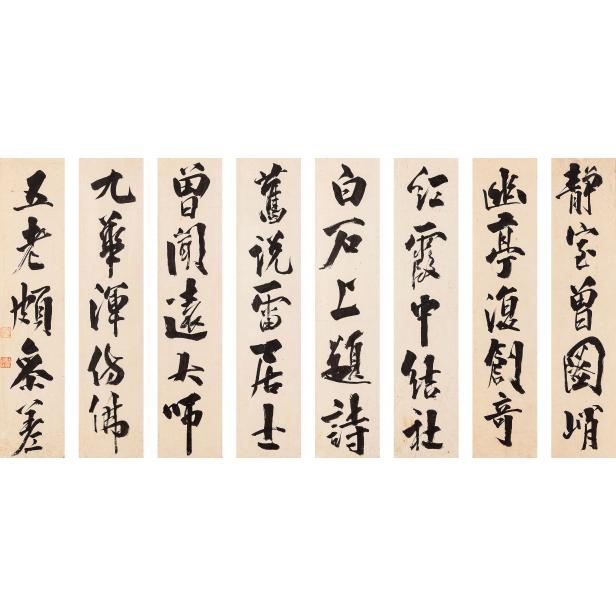 靜室曾圖峭
幽亭復創奇
紅霞中結社
白石上題詩
舊說雷居士
曾聞遠大師
九華渾仿佛
五老頗參差